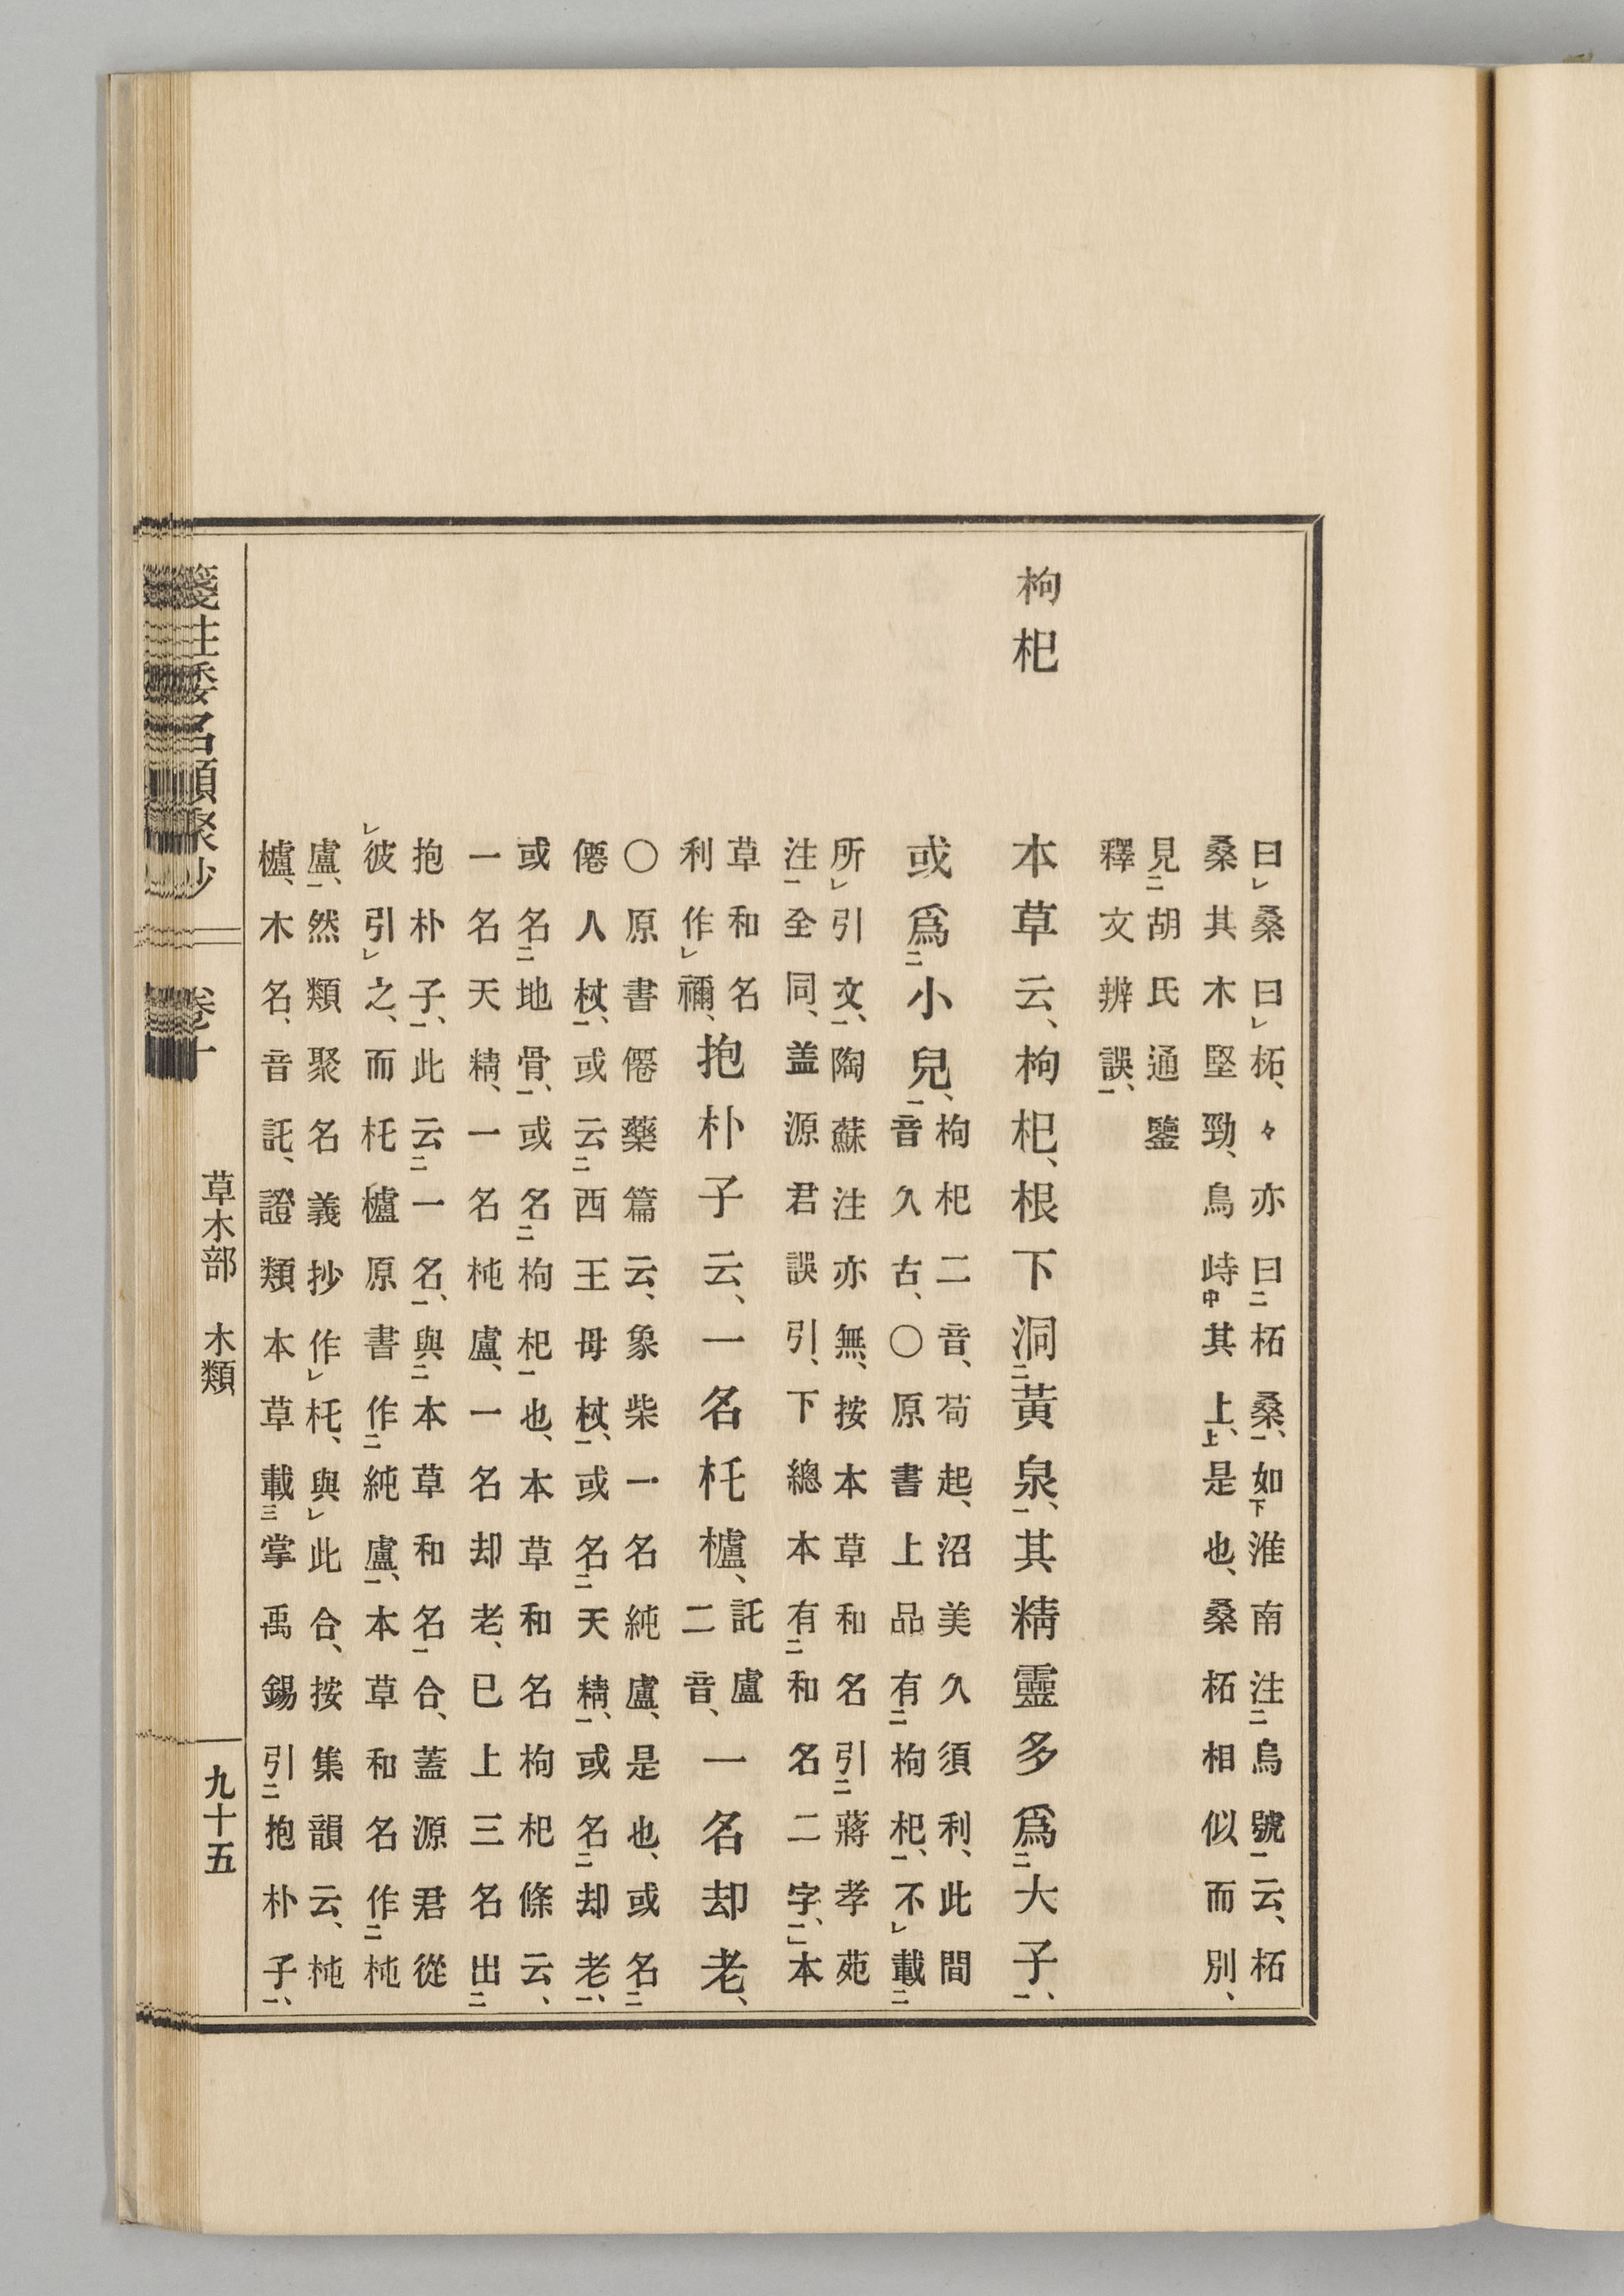 曰㆑桑曰㆑柘、々亦曰㆓柘桑㆒、如㆘淮南注㆓烏號㆒云、柘
桑其木堅勁、鳥峙㆗其上㆖、是也、桑柘相似而別、
見㆓胡氏通鑒
釋文辨誤㆒、
枸杞
本草云、枸杞、根下洞㆓黃泉㆒、其精靈多爲㆓大子㆒、
或爲㆓小兒㆒、
枸杞二音、苟起、沼美久須利、此間
音久古、〇原書上品有㆓枸杞㆒、不㆑載㆓
所㆑引文㆒、陶蘇注亦無、按本草和名引㆓蔣孝苑
注㆒全同、蓋源君誤引、下總本有㆓和名二字㆒、本
草和名
利作㆑禰、
抱朴子云、一名杔櫨、
託盧
二音、
一名却老、
〇原書僊藥篇云、象柴一名純盧、是也、或名㆓
僊人杖㆒、或云㆓西王母杖㆒、或名㆓天精㆒、或名㆓却老㆒、
或名㆓地骨㆒、或名㆓枸杞㆒也、本草和名枸杞條云、
一名天精、一名杶盧、一名却老、已上三名出㆓
抱朴子㆒、此云㆓一名㆒、與㆓本草和名㆒合、蓋源君從
㆑彼引㆑之、而杔櫨原書作㆓純盧㆒、本草和名作㆓杶
盧㆒、然類聚名義抄作㆑杔、與㆑此合、按集韻云、杶
櫨、木名、音託、證類本草載㆔掌禹錫引㆓抱朴子㆒、
箋注倭名類聚抄　卷十　草木部　木類　九十五